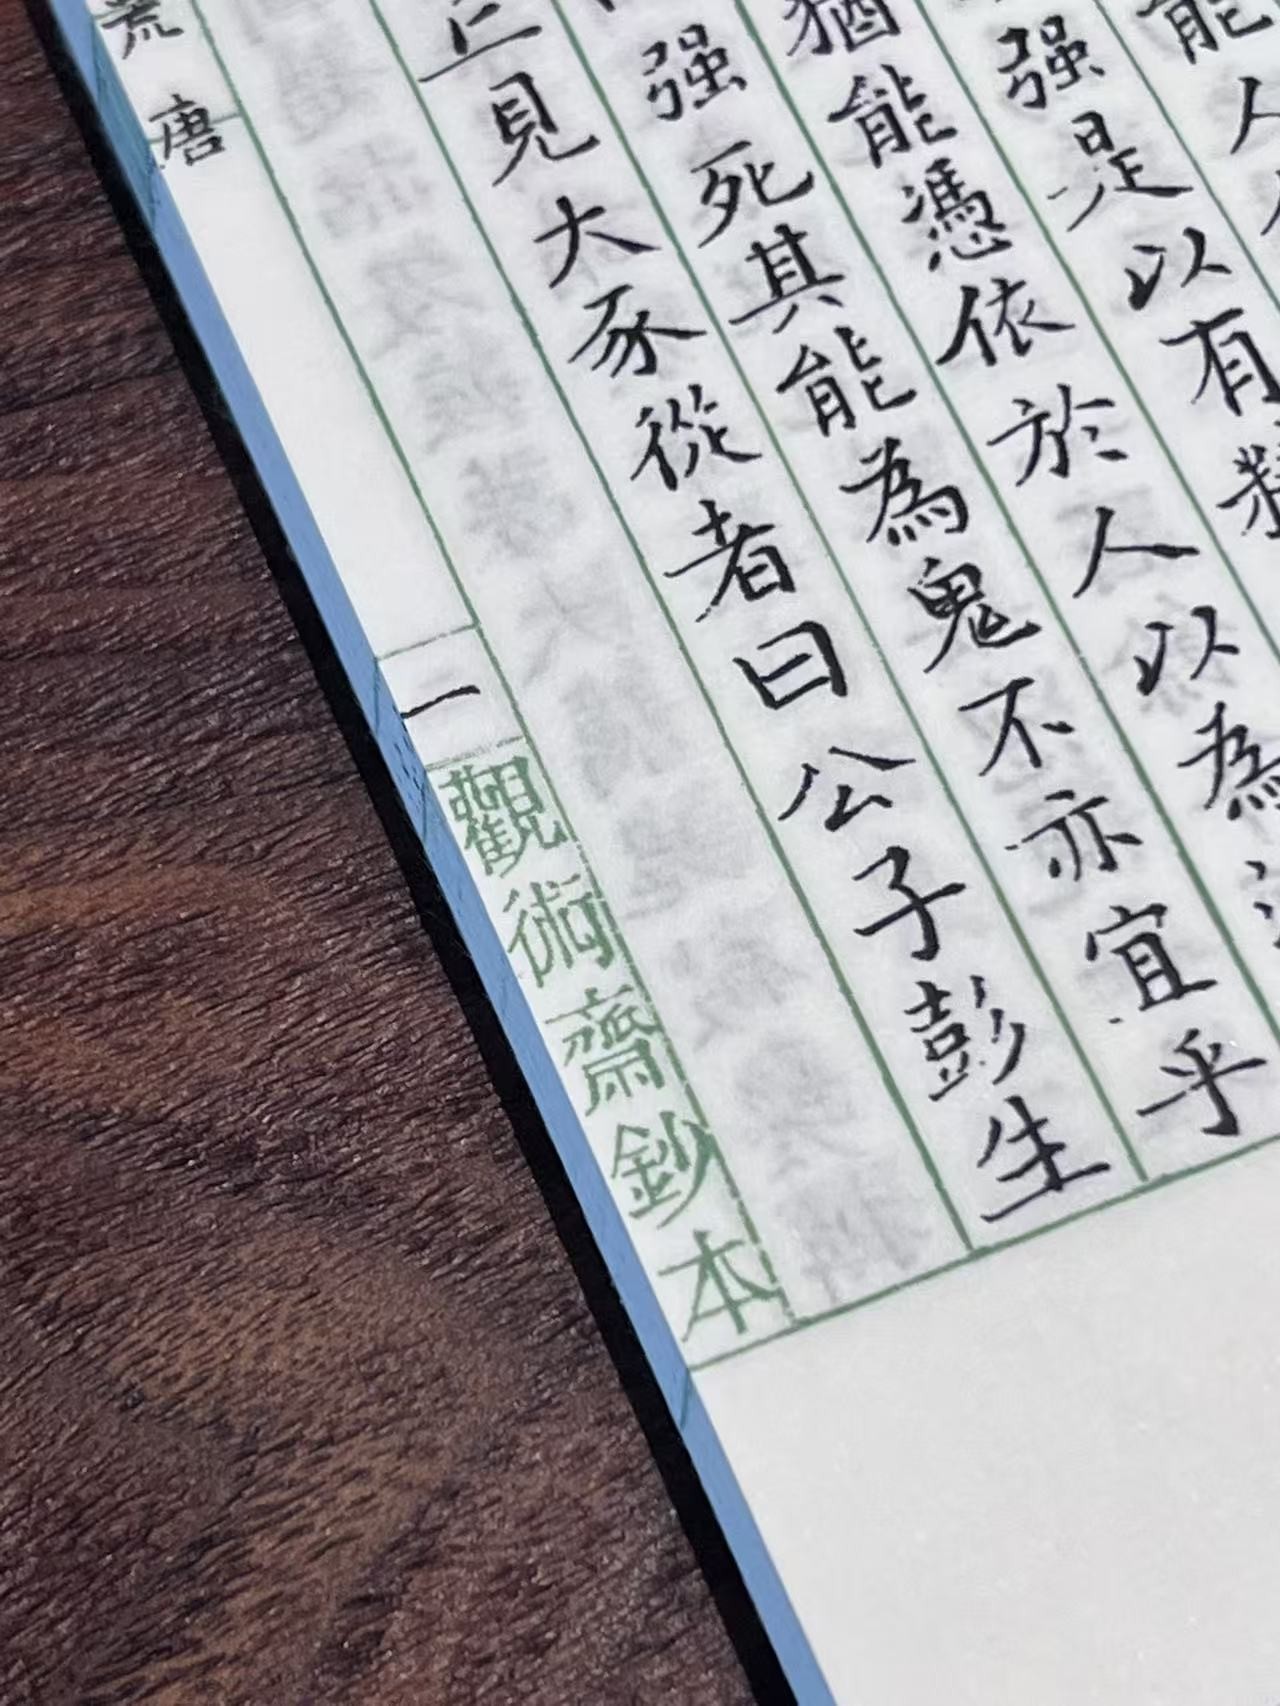 能人
强是以有精
猶能憑依於人以為淫
强死其能為鬼不亦宜乎
丘見大豕從者曰公子彭生
荒唐
一
觀術齋鈔本